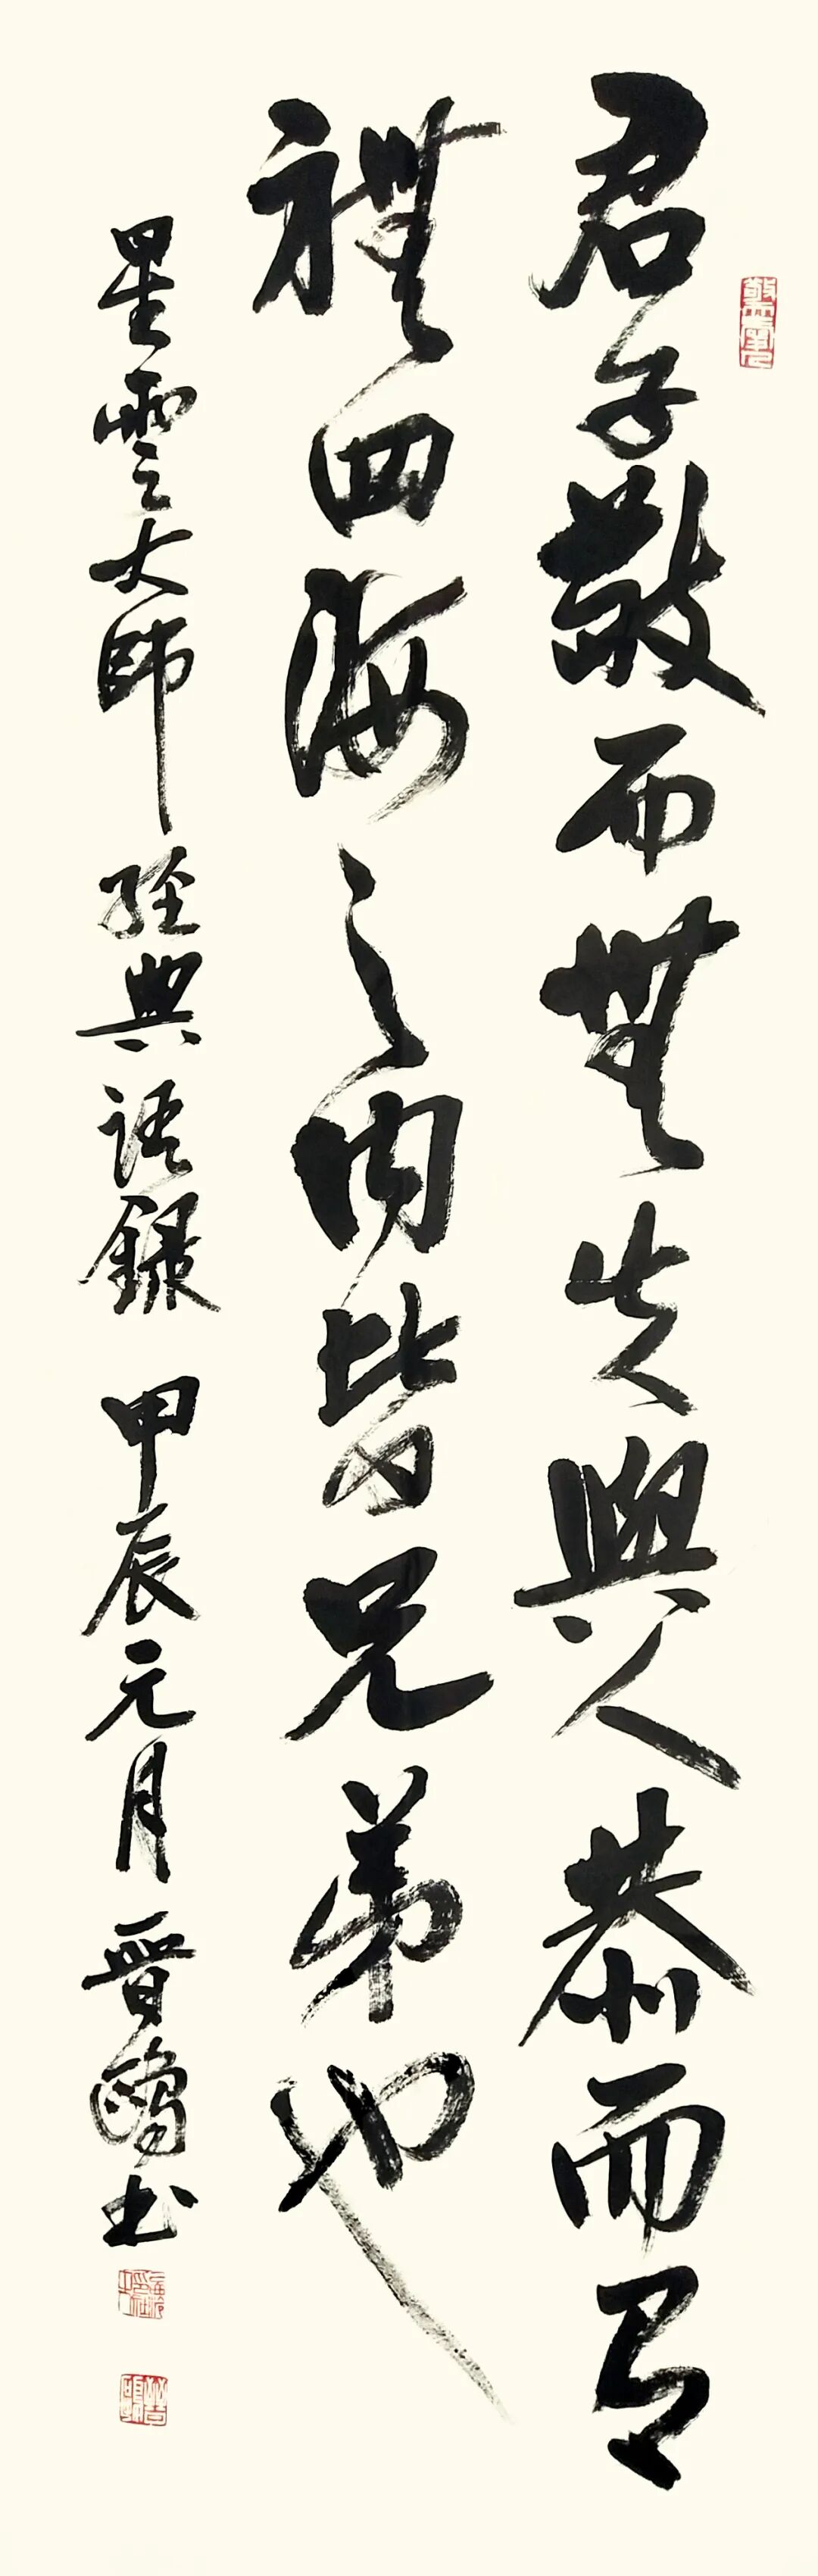 君子敬而無失與人恭而有
禮四海之内皆兄弟也
星雲大師經典語錄 甲辰元月 晋鷗书